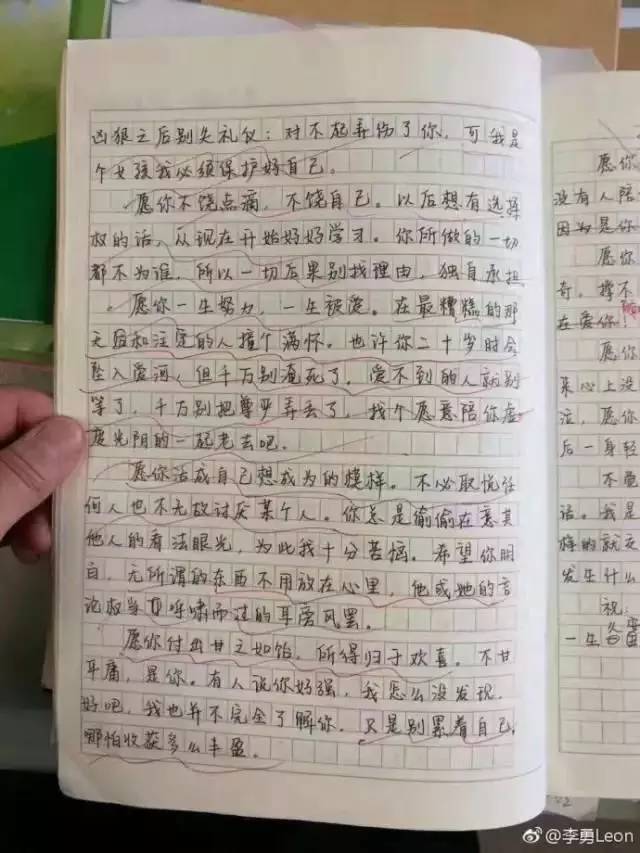 凶狠之后别失礼仪：对不起弄伤了你，可我是
个女孩我必须保护好自己。
愿你不饶点病，不饶自己。以后想有选择
权的话，从现在开始好好学习。你所做的一切
都不为谁，所以一切后果别找理由，独自承担。
愿你一生努力，一生被爱。在最糟糕的那
天超和注定的人撞个满怀。也许你二十岁时会
坠入爱河，但千万别淹死了，爱不到的人就别
等了，千万别把尊严弄丢了，找个愿意陪你虚
度光阴的一起老去吧。
愿你活成自己想成为的模样。不必取悦任
何人也不无故讨厌某个人。你总是偷偷在意其
他人的看法眼光，为此我十分苦恼。希望你明
白，无所谓的东西不用放在心里，他或她的言
论权当呼啸而过的耳旁风罢。
愿你付出甘之如饴，所得归于欢喜。不甘
平庸，是你。有人说你好强，我怎么没发现，
好吧，我也并不完全了解你，只是别累着自己，
哪怕收获多么丰盈。
愿你
没有人陪
因为是你
愿你
奇，撑不
在爱你！
愿你
来心上没
泣，愿你
后一身轻
不
话。我是
族的就交
发生什么
祝：
一生
@李勇Leon